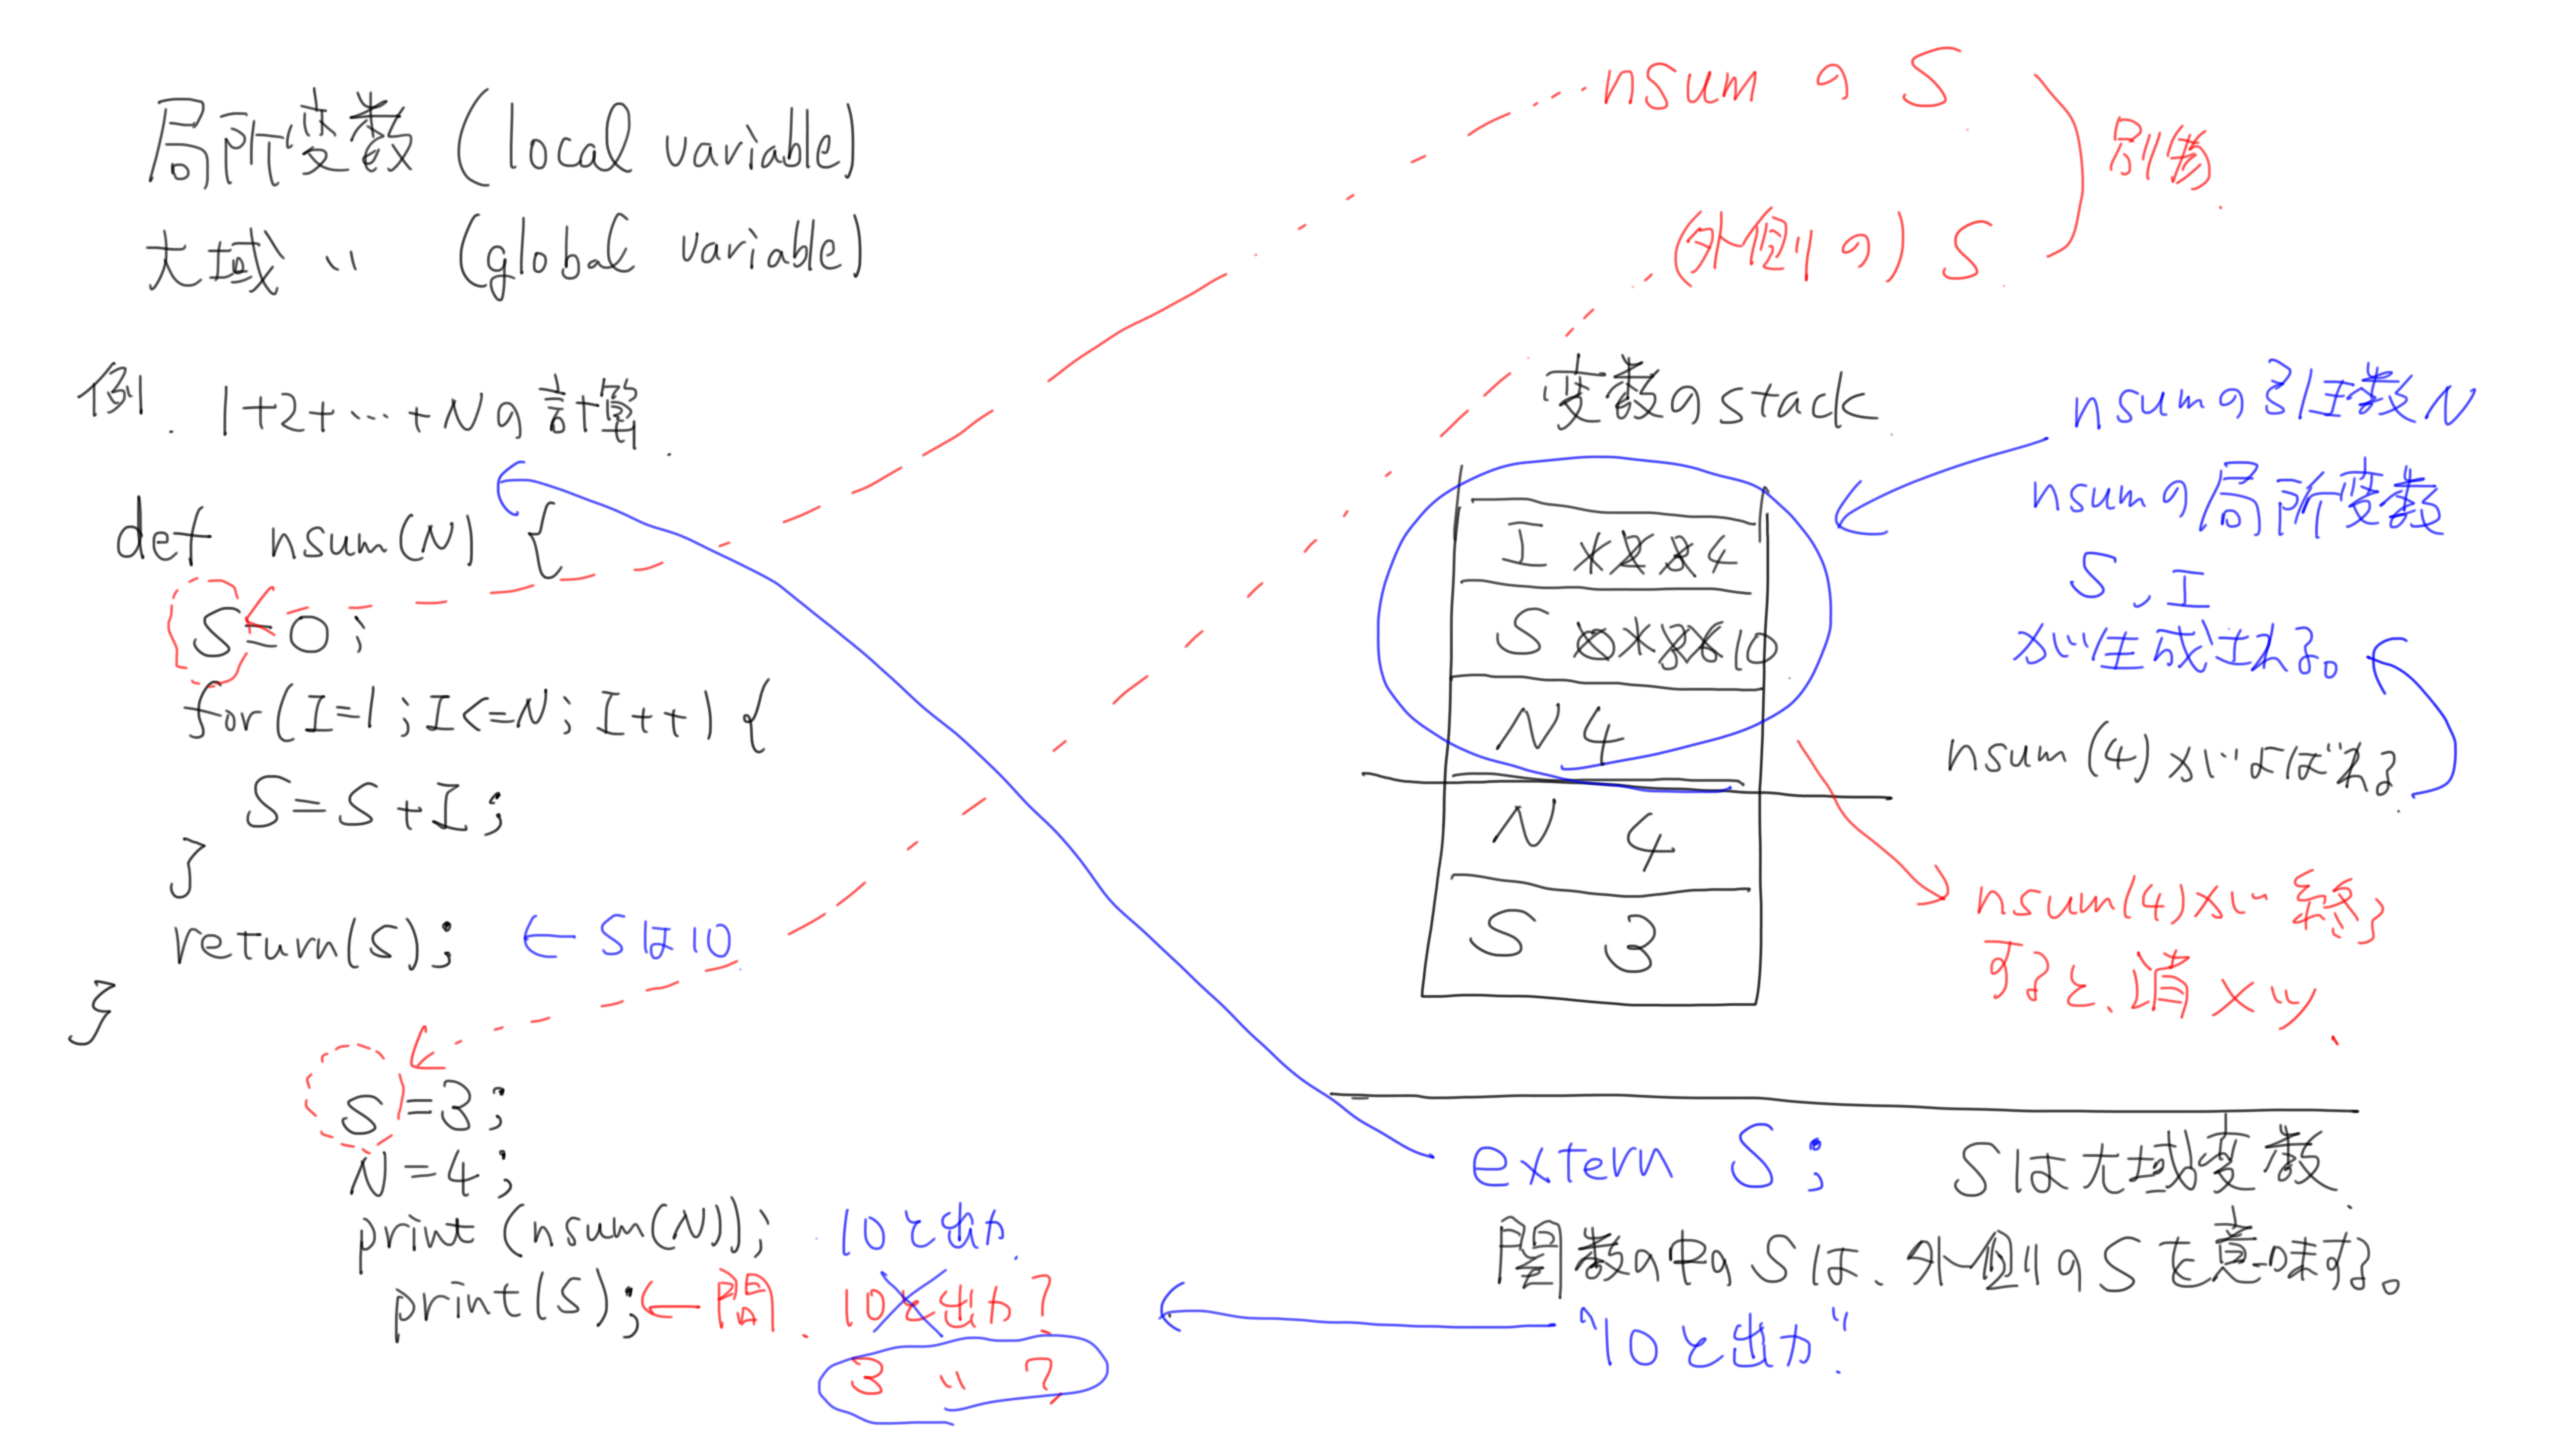 局所変数 (local variable)
大域 〃 (global variable)
例. 1+2+…+Nの計算.
def nsum(N) {
S=0;
for(I=1;I<=N;I++) {
S=S+I;
}
return(S); ← Sは10
}
S=3;
N=4;
print(nsum(N)); 10と出力.
print(S); ← 問. 10と出力?
3 〃 ?
nsumのS
(外側の) S
別物.
変数のstack
I 1 2 3 4
S 0 1 3 6 10
N 4
N 4
S 3
nsumの引数N
nsumの局所変数
S, I
が生成される。
nsum(4)がよばれる.
nsum(4)が終了
すると、消メツ.
extern S; Sは大域変数.
関数の中のSは、外側のSを意味する。
"10と出力".